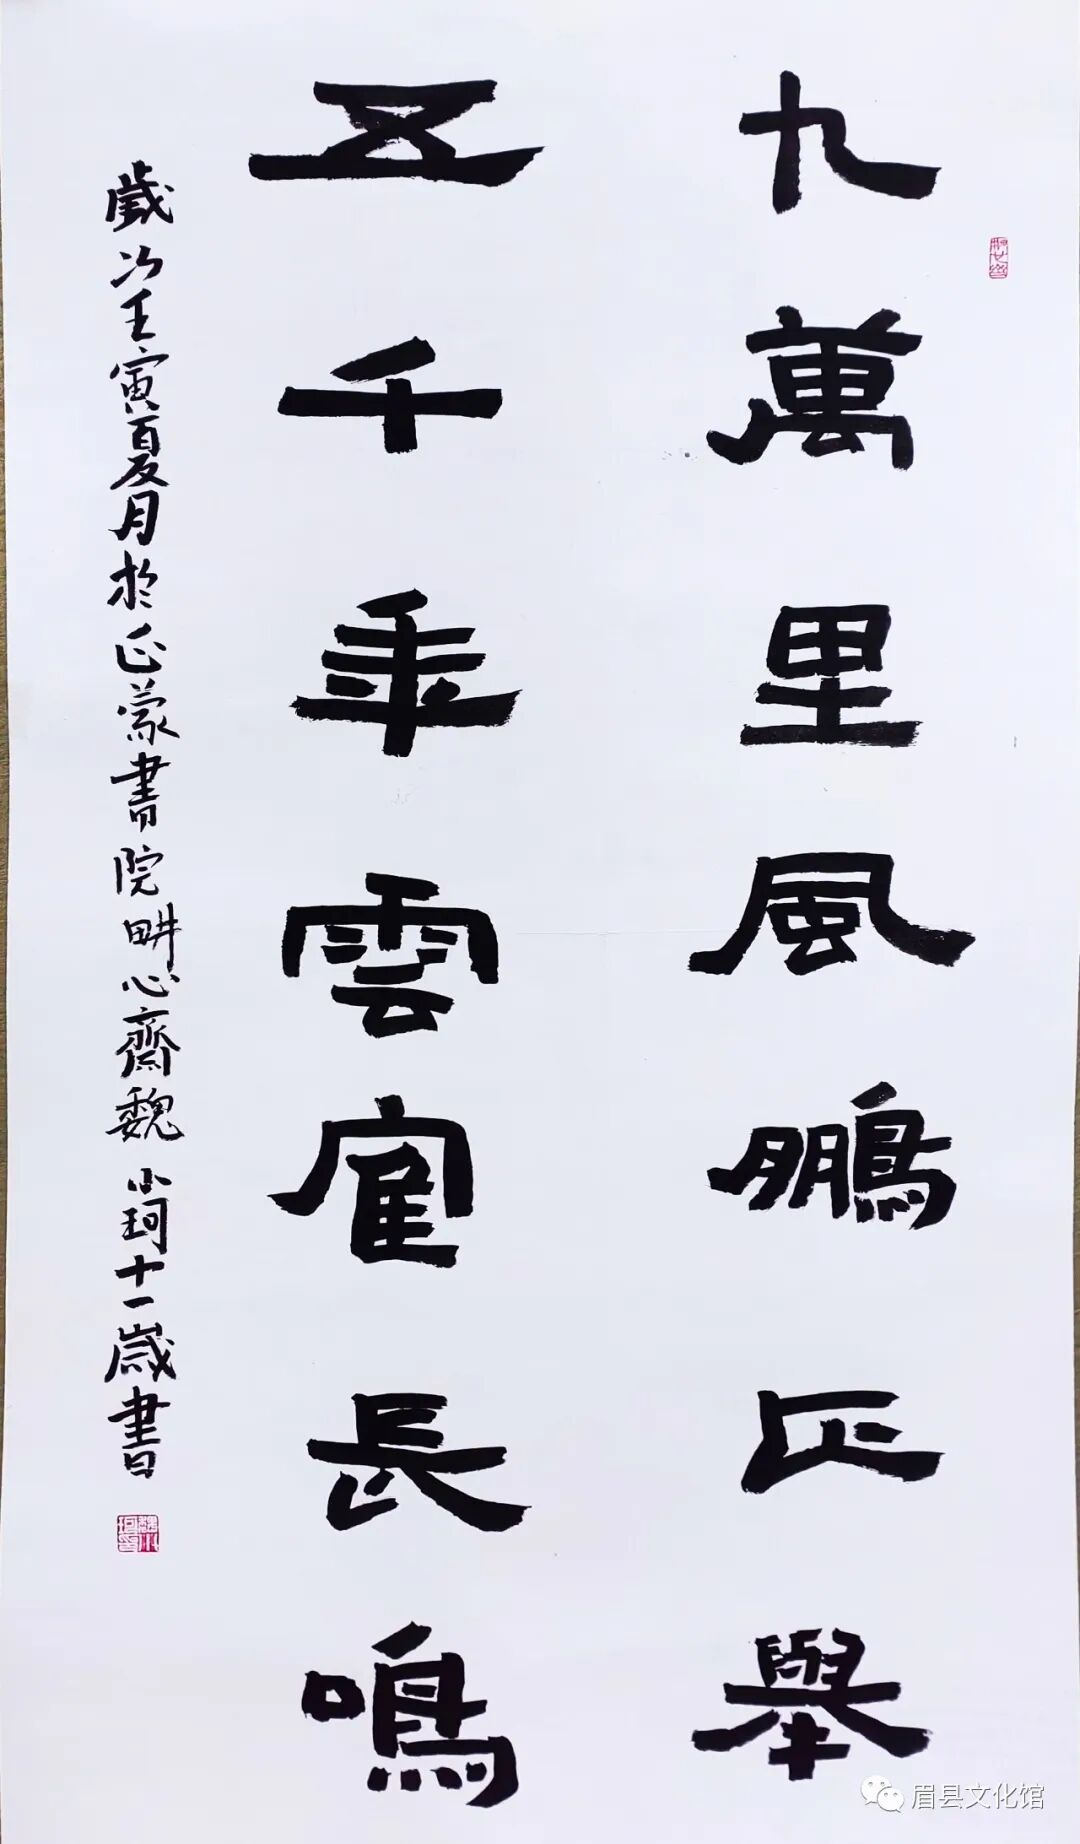 九萬里風鵬正舉
五千年雲隺長鳴
歲次壬寅夏月於正蒙書院畊心齋魏小珂十一歲書
眉县文化馆